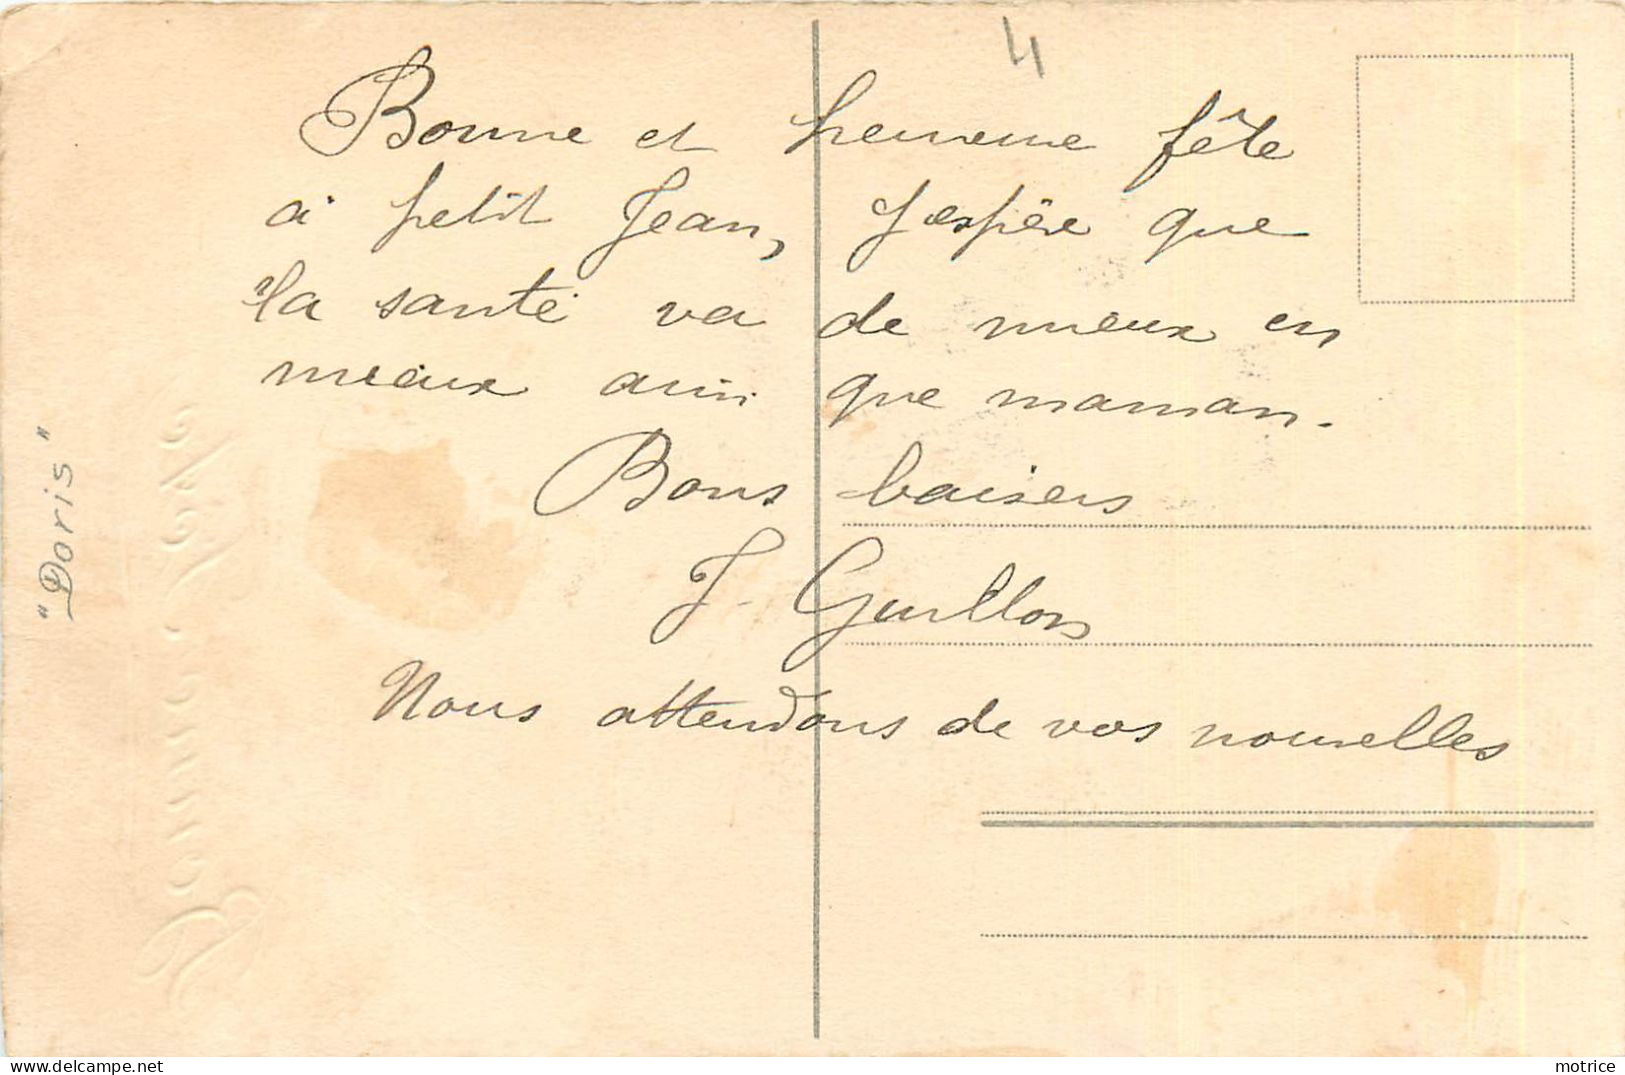 4
Bonne et heureuse fête
à petit Jean, J'espère que
la santé va de mieux en
mieux ainsi que maman.
Bons baisers
J. Guillon
Nous attendons de vos nouvelles
"Doris"
Bonne Fête
motrice